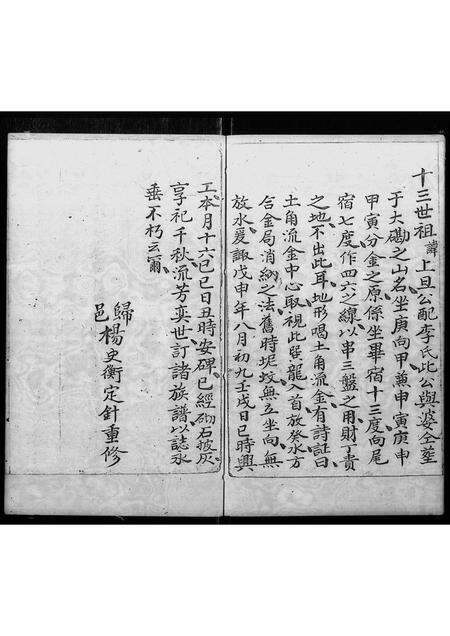 十三世祖諱上旦公配李氏此公與婆仝塟
于大磡之山名坐庚向甲兼申寅庚申
甲寅分金之原係坐畢宿十三度向尾
宿七度作四六之線以串三盤之用財丁貴
之地不出此耳地形喝土角流金有詩証曰
土角流金中心取視此巠龍人首放癸水方
合金局消納之法舊時坭坟無立坐向無
放水爰諏戊申年八月初九壬戌日巳時興
工本月十六己巳日丑時安碑已經砌石披灰
享祀千秋流芳奕世訂諸族譜以誌永
垂不朽云爾
歸邑楊史衡定針重修